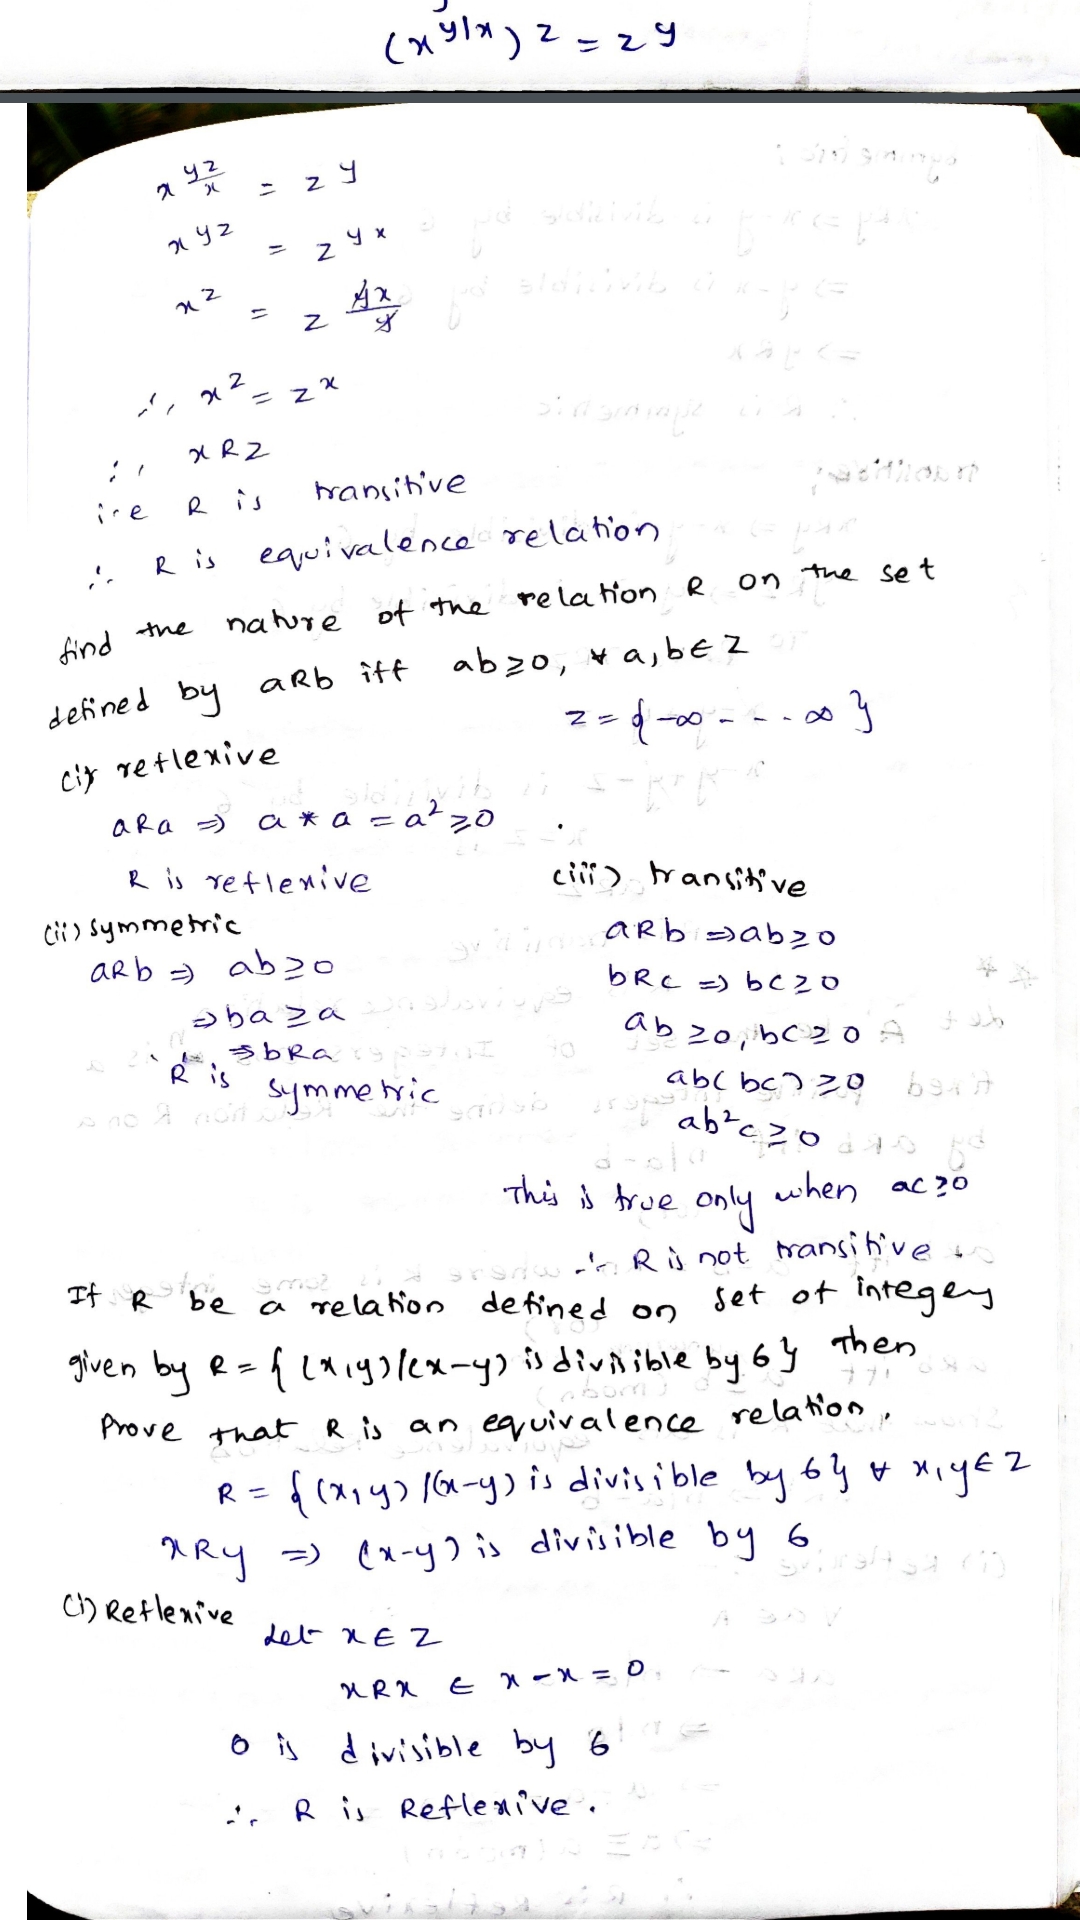 (x^y/x)^z = z^y
x^yz/x = z^y
x^yz = z^yx
x^z = z^yx/y
∴ x^z = z^x
∴ xRz
i.e R is transitive
∴ R is equivalence relation
find the nature of the relation R on the set
defined by aRb iff ab≥0, ∀ a,b∈Z
z = {-∞ - - - ∞}
(i) reflexive
aRa ⇒ a * a = a²≥0
R is reflexive
(ii) Symmetric
aRb ⇒ ab≥0
⇒ba≥a
⇒bRa
R is symmetric
(iii) transitive
aRb ⇒ab≥0
bRc ⇒ bc≥0
ab≥0, bc≥0
ab(bc)≥0
ab²c≥0
This is true only when ac≥0
∴ R is not transitive.
If R be a relation defined on set of integers
given by R = {(x,y)/(x-y) is divisible by 6} Then
Prove that R is an equivalence relation.
R = {(x,y) /(x-y) is divisible by 6} ∀ x,y∈Z
xRy ⇒ (x-y) is divisible by 6
(i) Reflexive
Let x∈Z
xRx ∈ x-x=0
0 is divisible by 6
∴ R is Reflexive.